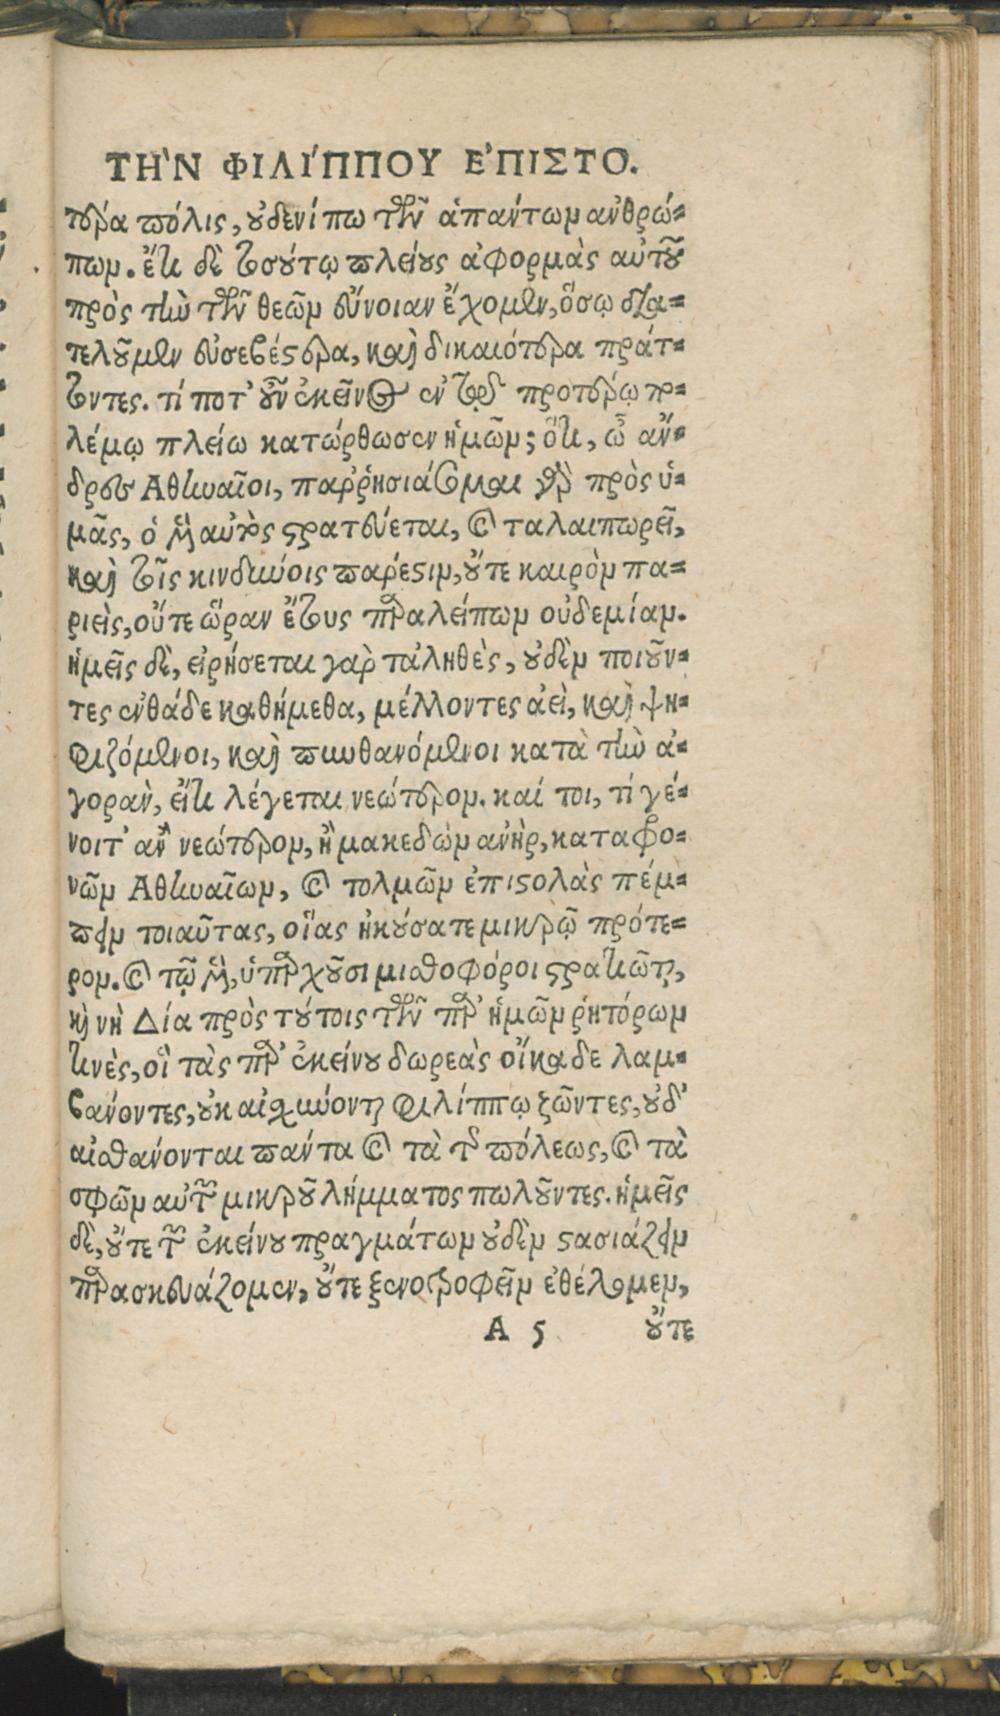 ΤῊΝ ΦΙΛΊΠΠΟΥ Ε᾽ΠΙΣΤΟ.
τέρα πόλις, οὐδενί πω τῶν ἁπάντων ἀνθρώ-
πων. ἔτι δὲ τοσούτῳ πλείους ἀφορμὰς αὐτοῦ
πρὸς τὴν τῶν θεῶν εὔνοιαν ἔχομεν, ὅσῳ δια-
τελοῦμεν εὐσεβέστερα, καὶ δικαιότερα πράτ-
τοντες. τί ποτ' οὖν ἐκεῖνος ἐν τῷδε προτέρῳ πο-
λέμῳ πλείω κατώρθωσεν ἡμῶν; ὅτι, ὦ ἄν-
δρες Ἀθηναῖοι, παῤῥησιάσομαι γὰρ πρὸς ὑ-
μᾶς, ὁ μὲν αὐτὸς στρατεύεται, καὶ ταλαιπωρεῖ,
καὶ τοῖς κινδύνοις πάρεστιν, οὔτε καιρὸν πα-
ριεὶς, οὔτε ὥραν ἔτους παραλείπων οὐδεμίαν.
ἡμεῖς δὲ, εἰρήσεται γὰρ τἀληθὲς, οὐδὲν ποιοῦν-
τες ἐνθάδε καθήμεθα, μέλλοντες ἀεὶ, καὶ ψη-
φιζόμενοι, καὶ πυνθανόμενοι κατὰ τὴν ἀ-
γορὰν, εἴ τι λέγεται νεώτερον. καί τοι, τί γέ-
νοιτ' ἂν νεώτερον, ἢ μακεδὼν ἀνὴρ, καταφρο-
νῶν Ἀθηναίων, καὶ τολμῶν ἐπιστολὰς πέμ-
πειν τοιαῦτας, οἵας ἠκούσατε μικρῷ πρότε-
ρον. καὶ τῷ μὲν, ὑπάρχουσι μισθοφόροι στρατιῶται,
καὶ νὴ Δία πρὸς τούτοις τῶν παρ' ἡμῶν ῥητόρων
τινὲς, οἳ τὰς παρ' ἐκείνου δωρεὰς οἴκαδε λαμ-
βάνοντες, οὐκ αἰσχύνονται Φιλίππῳ ζῶντες, οὐδ'
αἰσθάνονται πάντα καὶ τὰ τῆς πόλεως, καὶ τὰ
σφῶν αὐτῶν μικροῦ λήμματος πωλοῦντες. ἡμεῖς
δὲ, οὔτε τῶν ἐκείνου πραγμάτων οὐδὲν στασιάζειν
παρασκευάζομεν, οὔτε ξενοτροφεῖν ἐθέλομεν,
A 5 οὔτε